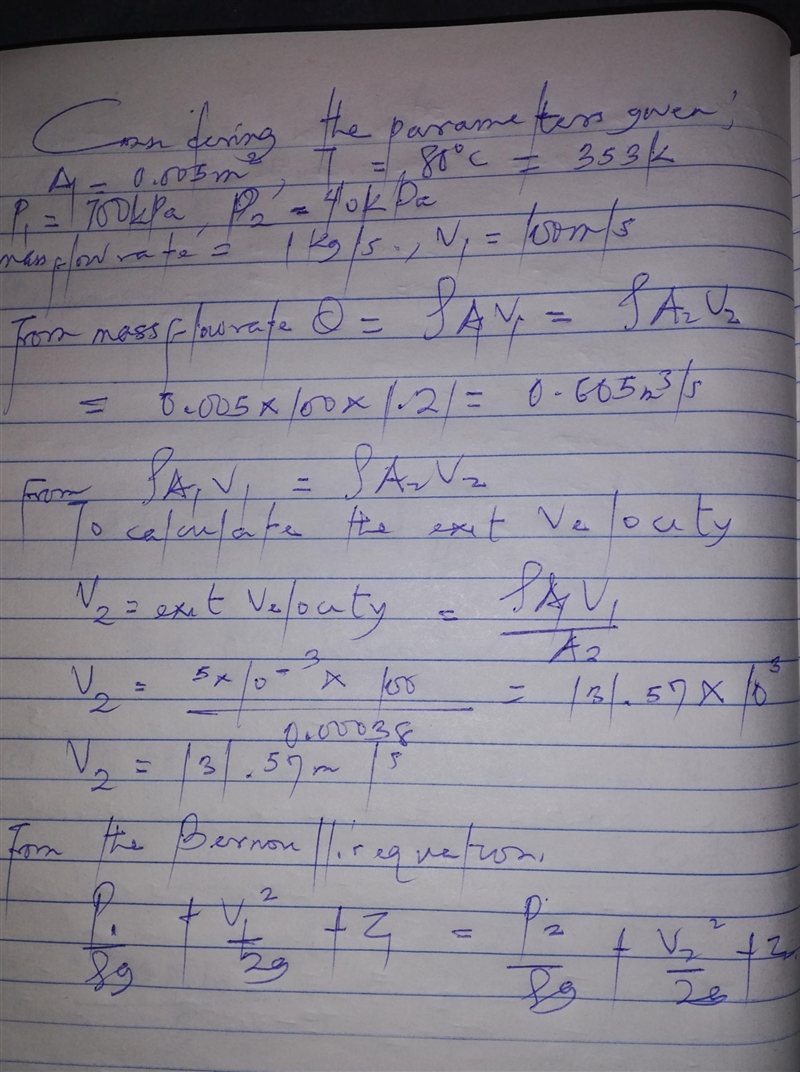 Considering the parameters given;
A₁ = 0.005m², T = 80°C = 353k
P₁ = 700kPa, P₂ = 40kPa
mass flow rate = 1kg/s., V₁ = 100m/s
From mass flow rate Q = ρAV₁ = ρA₂V₂
= 0.005 × 100 × 1.21 = 0.605m³/s
From ρA₁V₁ = ρA₂V₂
To calculate the exit Velocity
V₂ = exit Velocity = ρA₁V₁ / A₂
V₂ = 5×10⁻³ × 100 / 0.00038 = 131.57 × 10³
V₂ = 131.57m/s
From the Bernoulli's equation.
P₁/ρg + V₁²/2g + Z₁ = P₂/ρg + V₂²/2g + Z₂